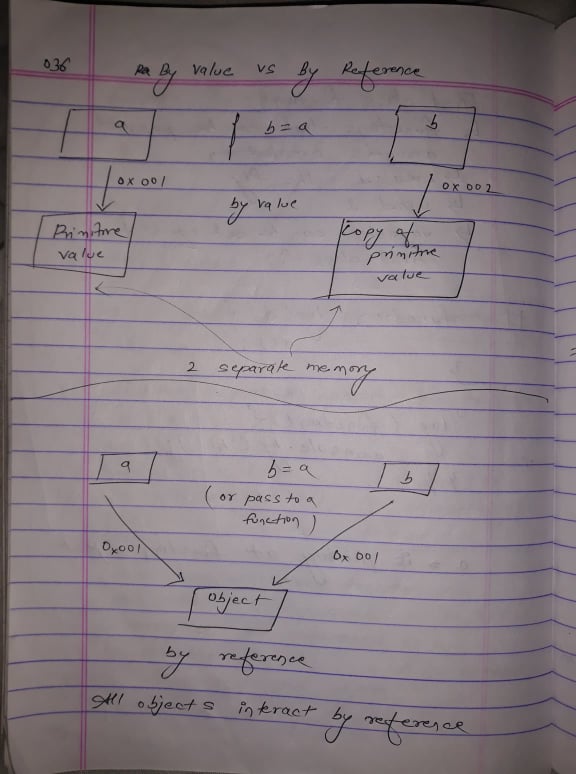 036
By value vs By Reference
a
b = a
b
0x001
0x002
by value
Primitive
value
Copy of
primitive
value
2 separate memory
a
b = a
b
(or pass to a
function)
0x001
0x001
object
by reference
All objects interact by reference